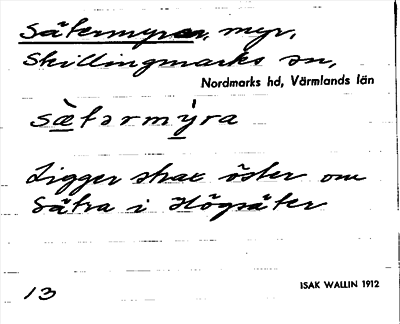 Sätermyran, myr,
Skillingmarks sn,
Nordmarks hd, Värmlands län
sæ̀tərmy̌ra
Ligger strax öster om
Sätra i Högsäter
13
ISAK WALLIN 1912